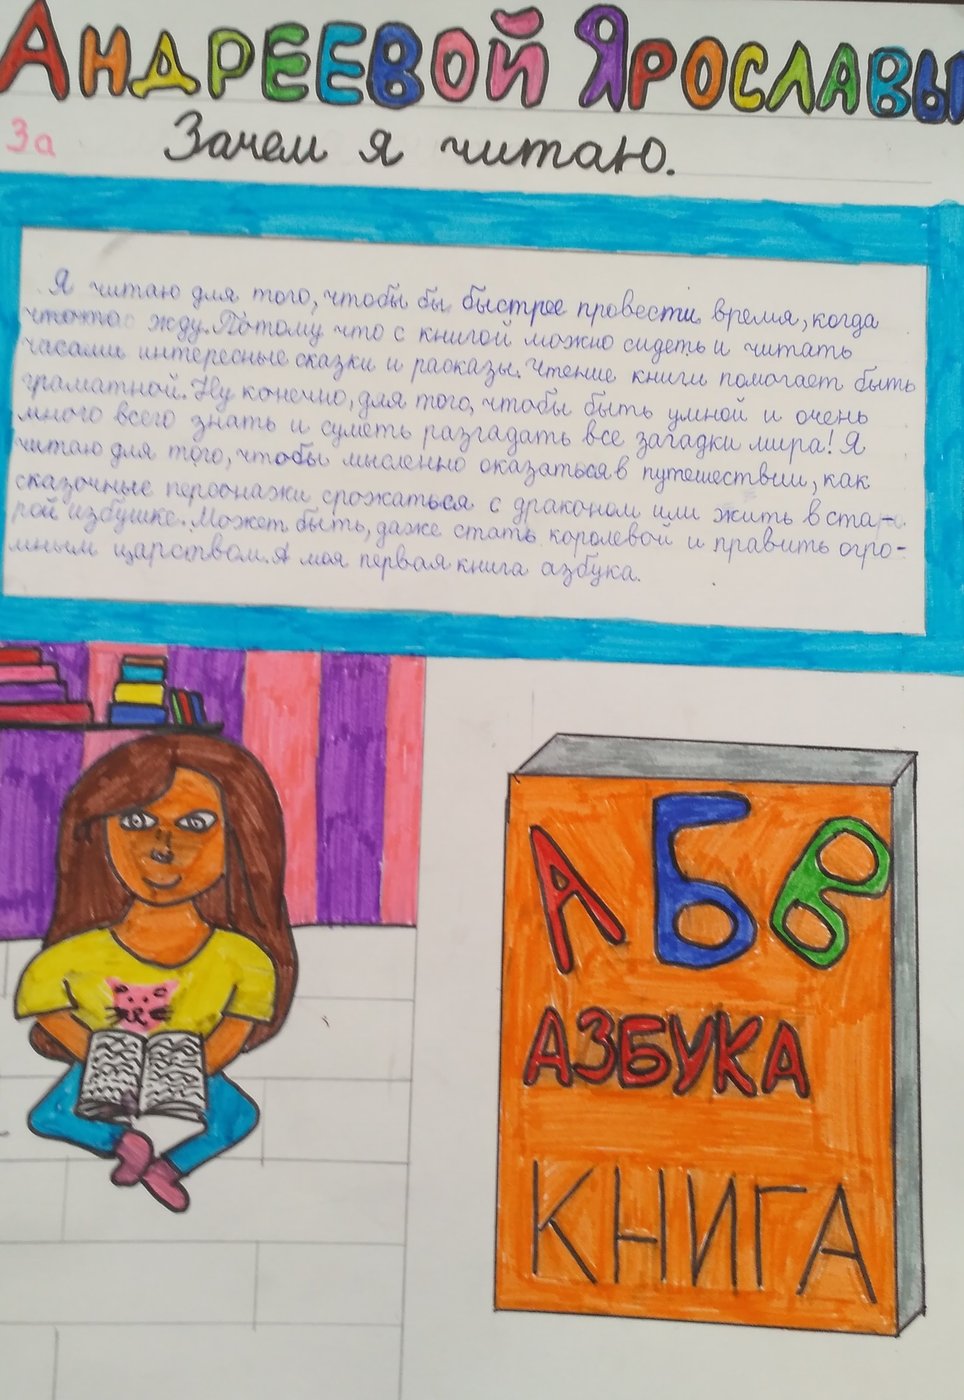 Андреевой Ярославы
3а
Зачем я читаю.
Я читаю для того, чтобы бы быстрее провести время, когда
что-то жду. Потому что с книгой можно сидеть и читать
часами интересные сказки и расказы. Чтение книги помогает быть
граматной. Ну конечно, для того, чтобы быть умной и очень
много всего знать и суметь разгадать все загадки мира! Я
читаю для того, чтобы мысленно оказаться в путешествии, как
сказочные персонажи срожаться с драконом или жить в ста-
рой избушке. Может быть, даже стать королевой и править огро-
мным царством. А моя первая книга азбука.
АБВ
АЗБУКА
КНИГА